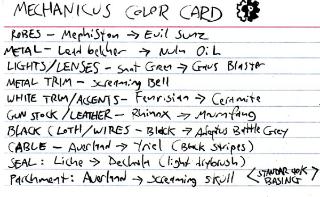 MECHANICUS COLOR CARD
ROBES – Mephiston → Evil Sunz
METAL – Leadbelcher → Nuln Oil
LIGHTS/LENSES – Green → Gauss Blaster
METAL TRIM – Screaming Bell
WHITE TRIM/ACCENTS – Fenrisian → Ceramite
GUN STOCK/LEATHER – Rhinox → Mournfang
BLACK CLOTH/WIRES – Black → Adeptus Battle Grey
CABLE – Averland → Yriel (Black stripes)
SEAL: Liche → Dechala (light drybrush)
Parchment: Averland → Screaming Skull <STANDARD 40K BASING>